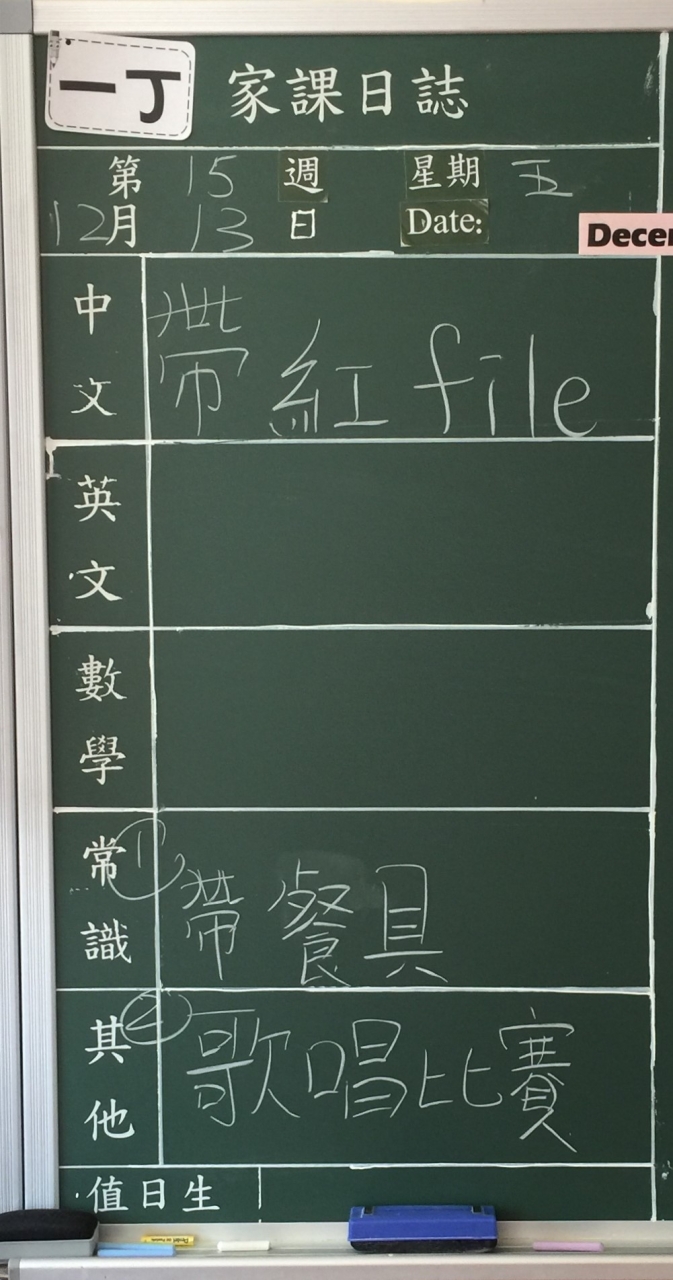 一丁
家課日誌
第 15 週 星期 五
12月 13 日 Date:
Decem
中文 帶紅file
英文
數學
常識 ① 帶餐具
其他 ② 歌唱比賽
值日生